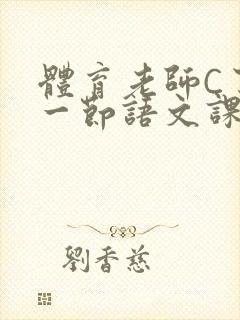 體育老師C
一節語文課
劉香慈